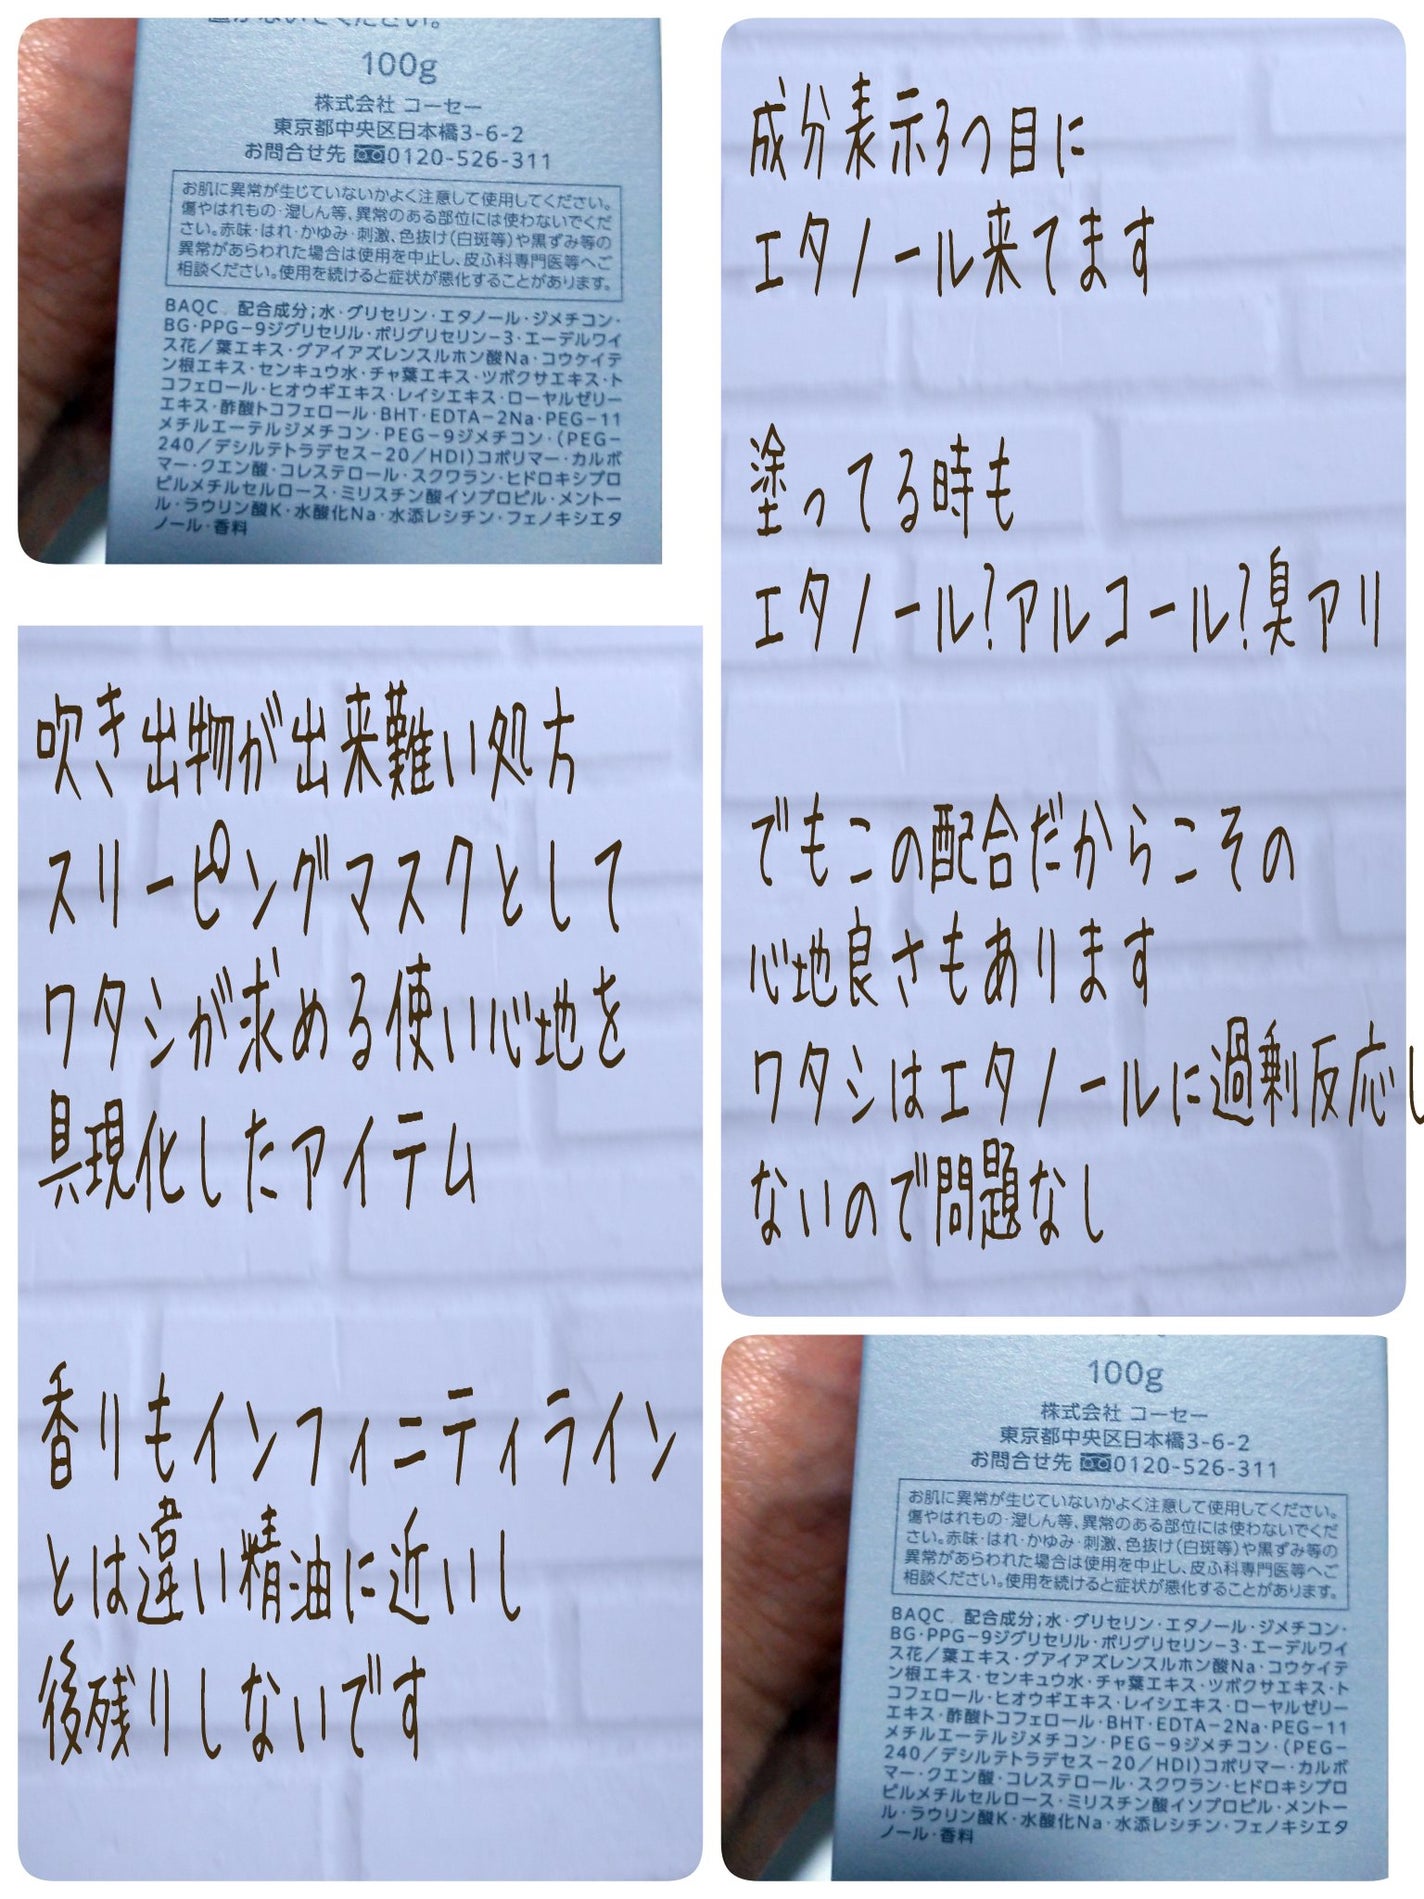 100g
株式会社 コーセー
東京都中央区日本橋3-6-2
お問合せ先 0120-526-311
お肌に異常が生じていないかよく注意して使用してください。
傷やはれもの・湿しん等、異常のある部位には使わないでくだ
さい。赤味・はれ・かゆみ・刺激、色抜け(白斑等)や黒ずみ等の
異常があらわれた場合は使用を中止し、皮ふ科専門医等へご
相談ください。使用を続けると症状が悪化することがあります。
BAQC 配合成分;水・グリセリン・エタノール・ジメチコン・
BG・PPG-9ジグリセリル・ポリグリセリン-3・エーデルワイ
ス花/葉エキス・グアイアズレンスルホン酸Na・コウケイテ
ン根エキス・センキュウ水・チャ葉エキス・ツボクサエキス・ト
コフェロール・ヒオウギエキス・レイシエキス・ローヤルゼリー
エキス・酢酸トコフェロール・BHT・EDTA-2Na・PEG-11
メチルエーテルジメチコン・PEG-9ジメチコン・(PEG-
240/デシルテトラデセス-20/HDI)コポリマー・カルボ
マー・クエン酸・コレステロール・スクワラン・ヒドロキシプロ
ピルメチルセルロース・ミリスチン酸イソプロピル・メントー
ル・ラウリン酸K・水酸化Na・水添レシチン・フェノキシエタ
ノール・香料
吹き出物が出来難い処方
スリーピングマスクとして
ワタシが求める使い心地を
具現化したアイテム
香りもインフィニティライン
とは違い精油に近いし
後残りしないです
成分表示3つ目に
エタノール来てます
塗ってる時も
エタノール?アルコール?臭アリ
でもこの配合だからこその
心地良さもあります
ワタシはエタノールに過剰反応し
ないので問題なし
100g
株式会社 コーセー
東京都中央区日本橋3-6-2
お問合せ先 0120-526-311
お肌に異常が生じていないかよく注意して使用してください。
傷やはれもの・湿しん等、異常のある部位には使わないでくだ
さい。赤味・はれ・かゆみ・刺激、色抜け(白斑等)や黒ずみ等の
異常があらわれた場合は使用を中止し、皮ふ科専門医等へご
相談ください。使用を続けると症状が悪化することがあります。
BAQC 配合成分;水・グリセリン・エタノール・ジメチコン・
BG・PPG-9ジグリセリル・ポリグリセリン-3・エーデルワイ
ス花/葉エキス・グアイアズレンスルホン酸Na・コウケイテ
ン根エキス・センキュウ水・チャ葉エキス・ツボクサエキス・ト
コフェロール・ヒオウギエキス・レイシエキス・ローヤルゼリー
エキス・酢酸トコフェロール・BHT・EDTA-2Na・PEG-11
メチルエーテルジメチコン・PEG-9ジメチコン・(PEG-
240/デシルテトラデセス-20/HDI)コポリマー・カルボ
マー・クエン酸・コレステロール・スクワラン・ヒドロキシプロ
ピルメチルセルロース・ミリスチン酸イソプロピル・メントー
ル・ラウリン酸K・水酸化Na・水添レシチン・フェノキシエタ
ノール・香料